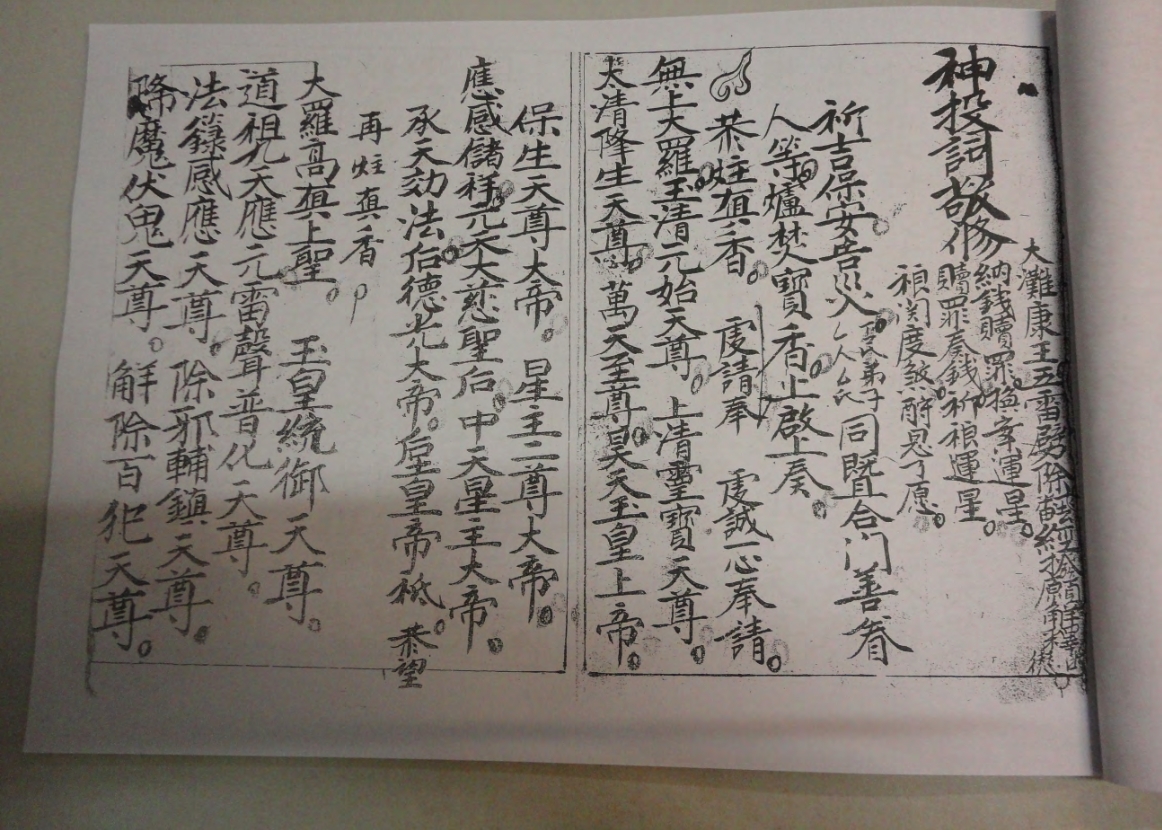 神投詞敬修
大灘康王五雷
納錢贖罪換案運星
贖罪奏錢祈禳運星
禳関度煞酧恩了愿
祈吉保安吉災 同暨合门善眷
人等爐焚寳香上啟上奏
恭炷真香 虔請奉 虔誠一心奉請
無上大羅玉清元始天尊 上清靈寳天尊
太清隆生天尊 萬天至尊昊天玉皇上帝
保生天尊大帝 星主二尊大帝
應感儲祥元天大慈聖后 中天星主大帝
承天効法后德光大帝 后皇帝祗 恭望
再炷真香
大羅高真上聖 玉皇統御天尊
道祖九天應元雷聲普化天尊
法籙感應天尊 除邪輔鎮天尊
降魔伏鬼天尊 解除百犯天尊